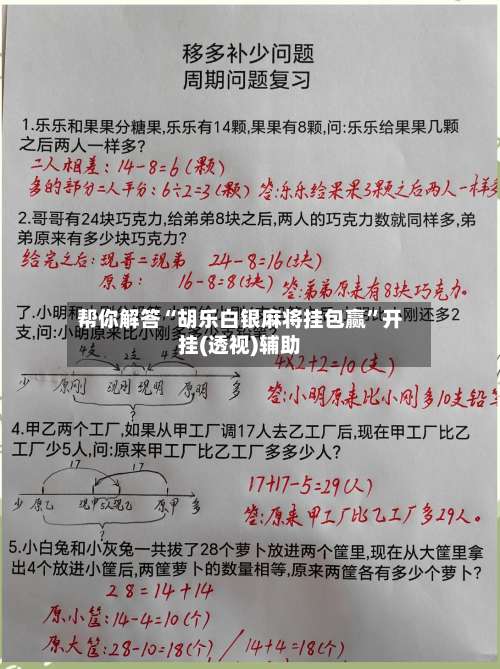 移多补少问题
周期问题复习
1.乐乐和果果分糖果,乐乐有14颗,果果有8颗,问:乐乐给果果几颗
之后两人一样多?
二人相差：14-8=6(颗)
多的部分二人平分：6÷2=3(颗) 答:乐乐给果果3颗之后两人一样多
2.哥哥有24块巧克力,给弟弟8块之后,两人的巧克力数就同样多,弟
弟原来有多少块巧克力?
给完之后：现哥=现弟 24-8=16(块)
原弟： 16-8=8(块) 答:弟弟原来有8块巧克力.
了.小明和
刚还多2
帮你解答“胡乐白银麻将挂包赢”开
挂(透视)辅助
支,问:小明原来比小刚多多少支铅笔?
4支 2支 4支
4X2+2=10(支)
少 原刚 现刚 现明 原明 多
?
答:小明原来比小刚多10支铅笔
4.甲乙两个工厂,如果从甲工厂调17人去乙工厂后,现在甲工厂比乙
工厂少5人,问:原来甲工厂比乙工厂多多少人?
17 17
17+17-5=29(人)
少 原乙 现甲5人现乙 原甲 多
?
答:原来甲工厂比乙工厂多29人。
5.小白兔和小灰兔一共拔了28个萝卜放进两个筐里,现在从大筐里拿
出4个放进小筐后,两筐萝卜的数量相等,原来两筐各有多少个萝卜?
28=14+14
原小筐:14-4=10(个)
原大筐:28-10=18(个) / 14+4=18(个)